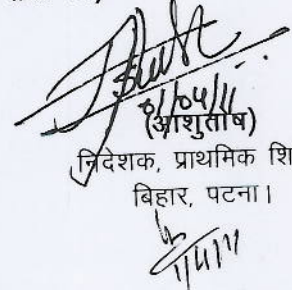 01/04/11
(आशुतोष)
निदेशक, प्राथमिक शि
बिहार, पटना।
1/4/11